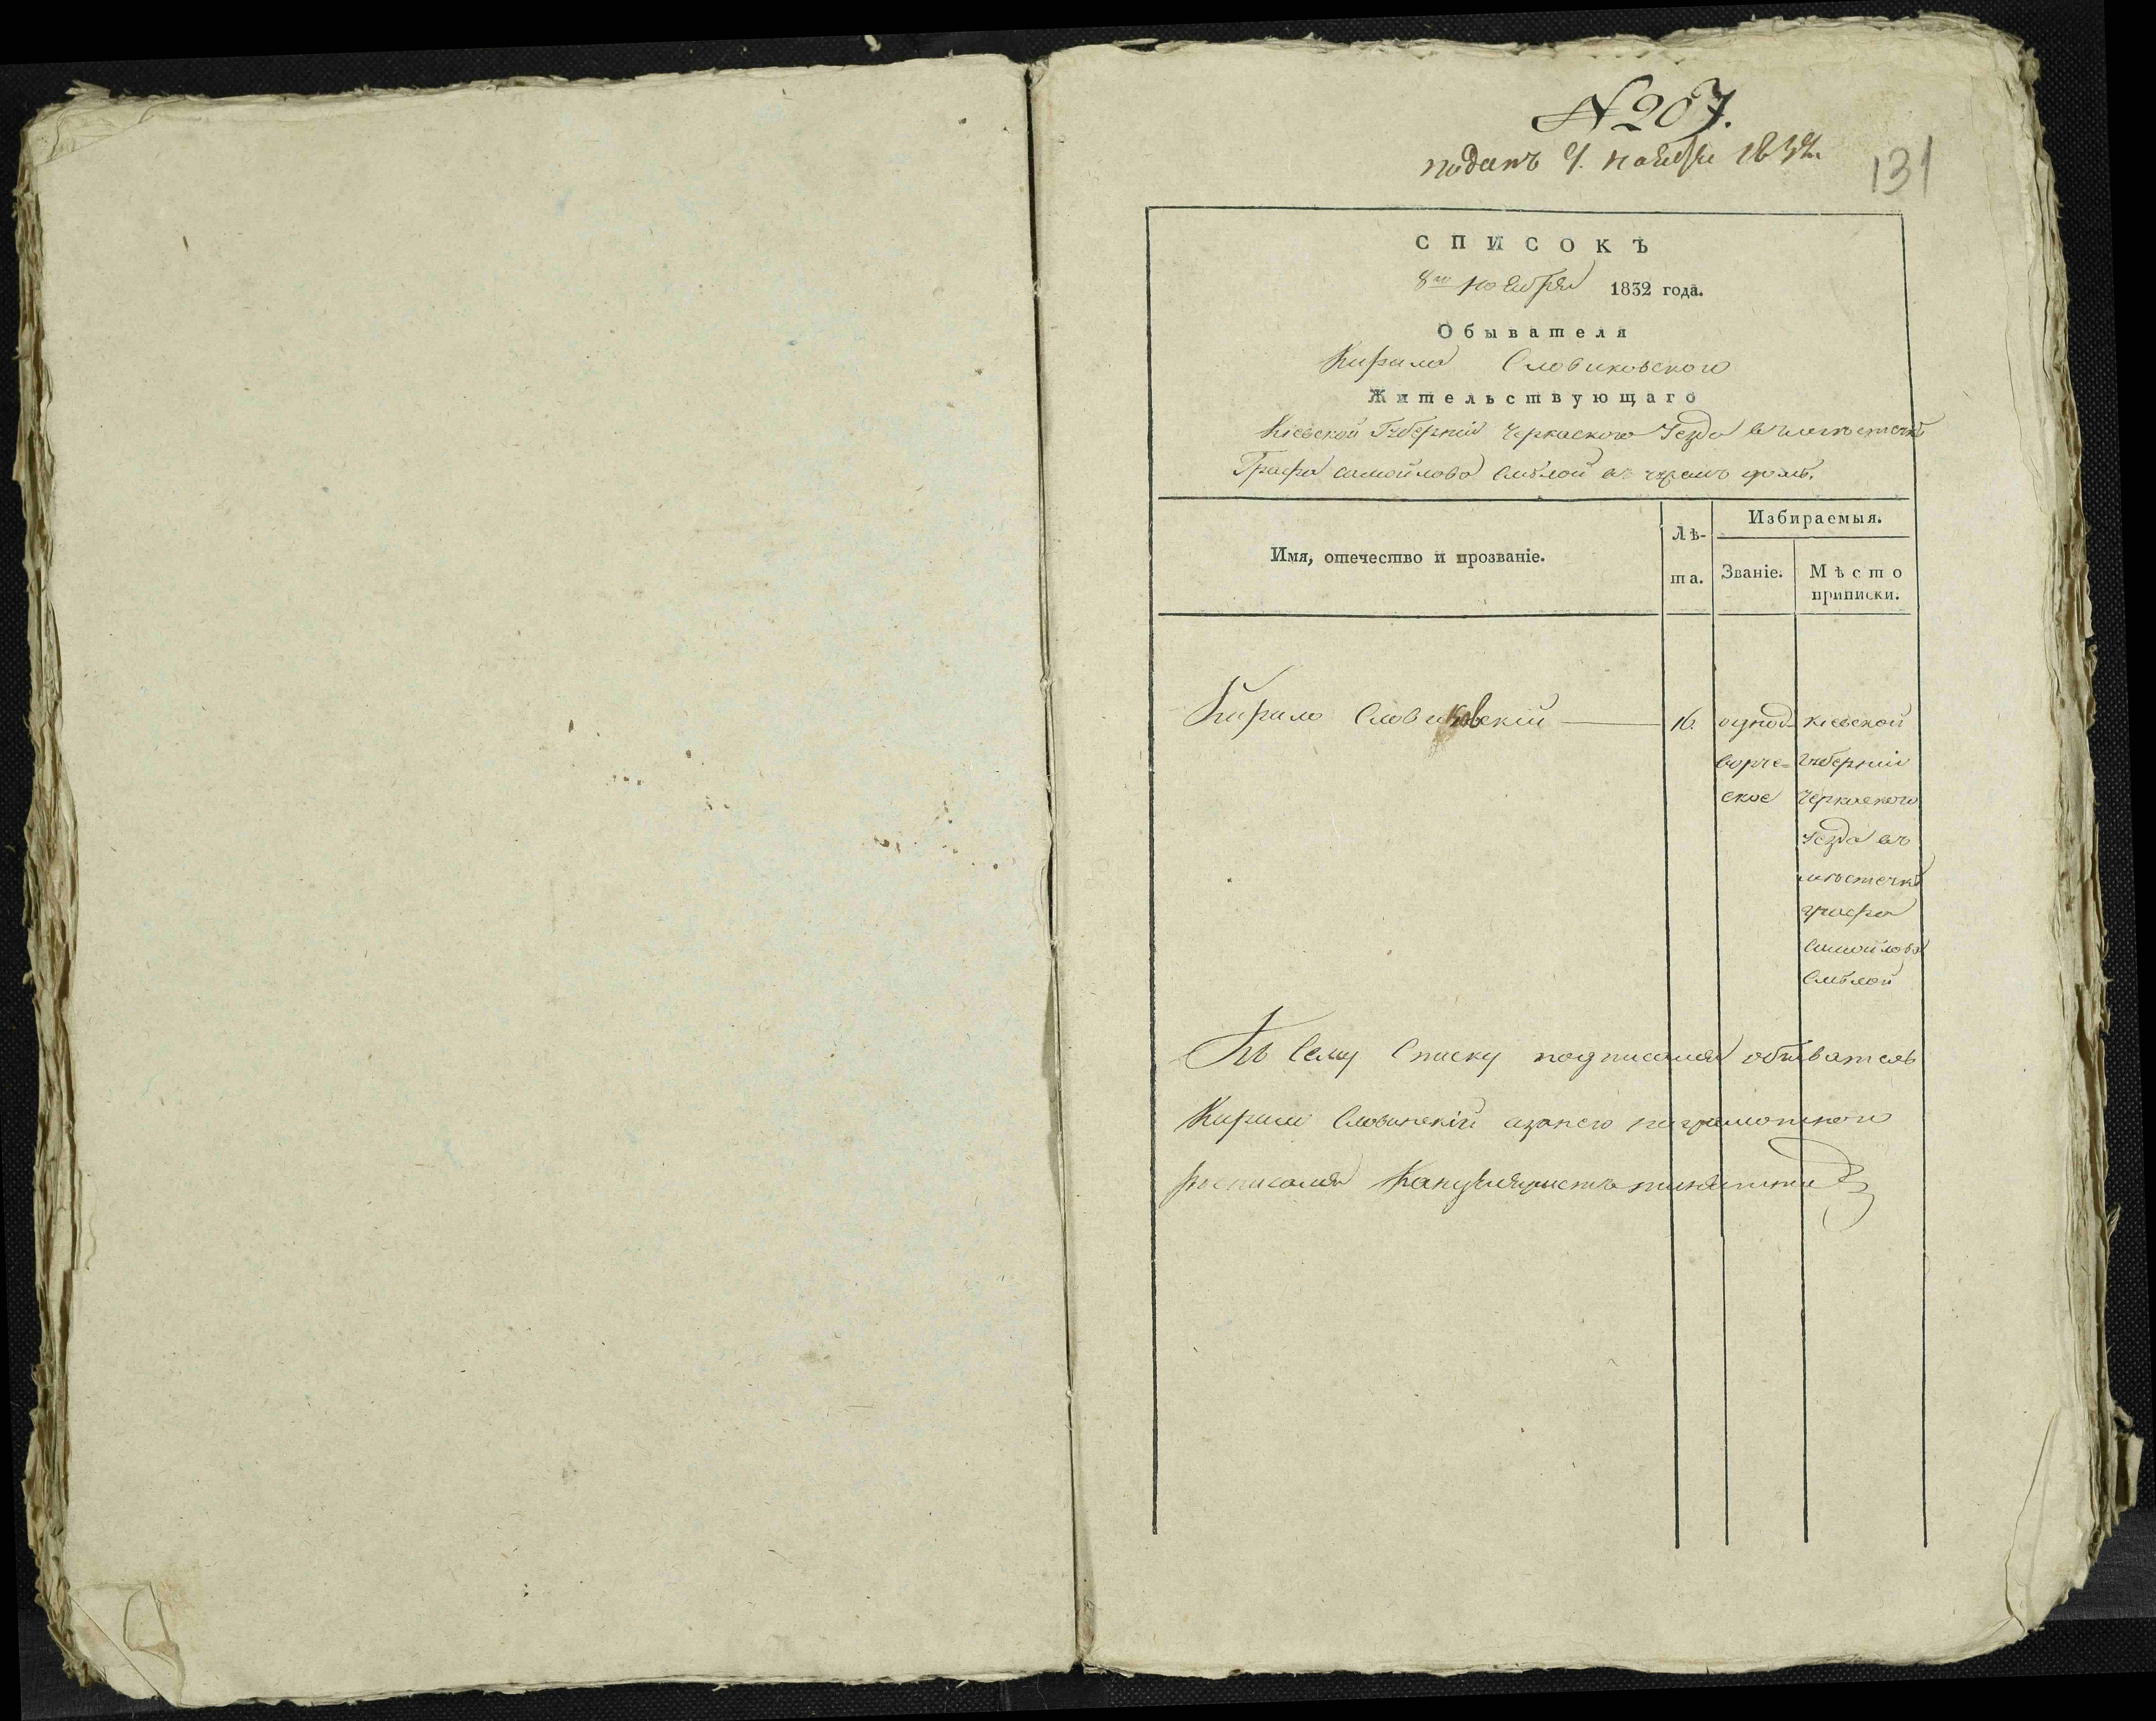 № 207.
поданъ 9. ноября 1832.
131
СПИСОКЪ
8го ноября 1832 года.
Обывателя
Кирила Словиковского
Жительствующаго
Кіевской Губерніи Черкаского Уезда въ местечкѣ
Графа самойлова Смѣлой въ домѣ.
Имя, отечество и прозваніе.
Лѣ-
та.
Избираемыя.
Званіе.
Мѣсто
приписки.
Кирило Словиковскій — 16. однод- кіевской
ворче- губерніи
ское Черкаского
Уезда въ
местечкѣ
графа
Самойлова
Смѣлой
Къ Сему Списку подписался обыватель
Кирило Словинскій азанего неграмотного
росписался Канцеляристъ